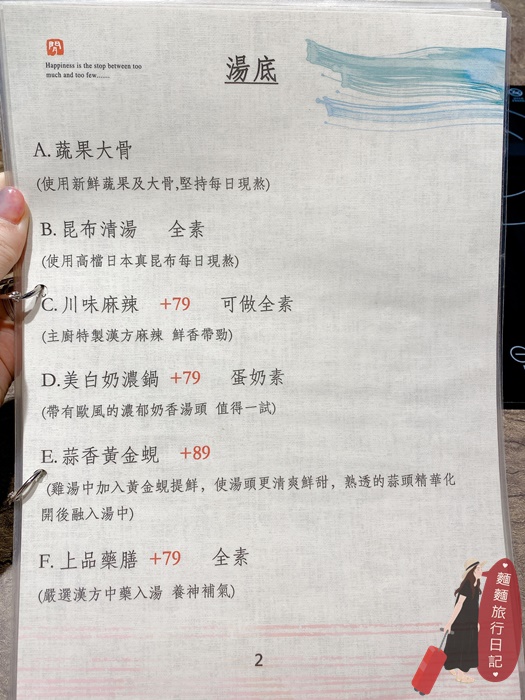 問
Happiness is the stop between too
much and too few.......
湯底
A. 蔬果大骨
(使用新鮮蔬果及大骨,堅持每日現熬)
B. 昆布清湯 全素
(使用高檔日本真昆布每日現熬)
C. 川味麻辣 +79 可做全素
(主廚特製漢方麻辣 鮮香帶勁)
D. 美白奶濃鍋 +79 蛋奶素
(帶有歐風的濃郁奶香湯頭 值得一試)
E. 蒜香黃金蜆 +89
(雞湯中加入黃金蜆提鮮，使湯頭更清爽鮮甜，熟透的蒜頭精華化
開後融入湯中)
F. 上品藥膳 +79 全素
(嚴選漢方中藥入湯 養神補氣)
2
麵麵旅行日記